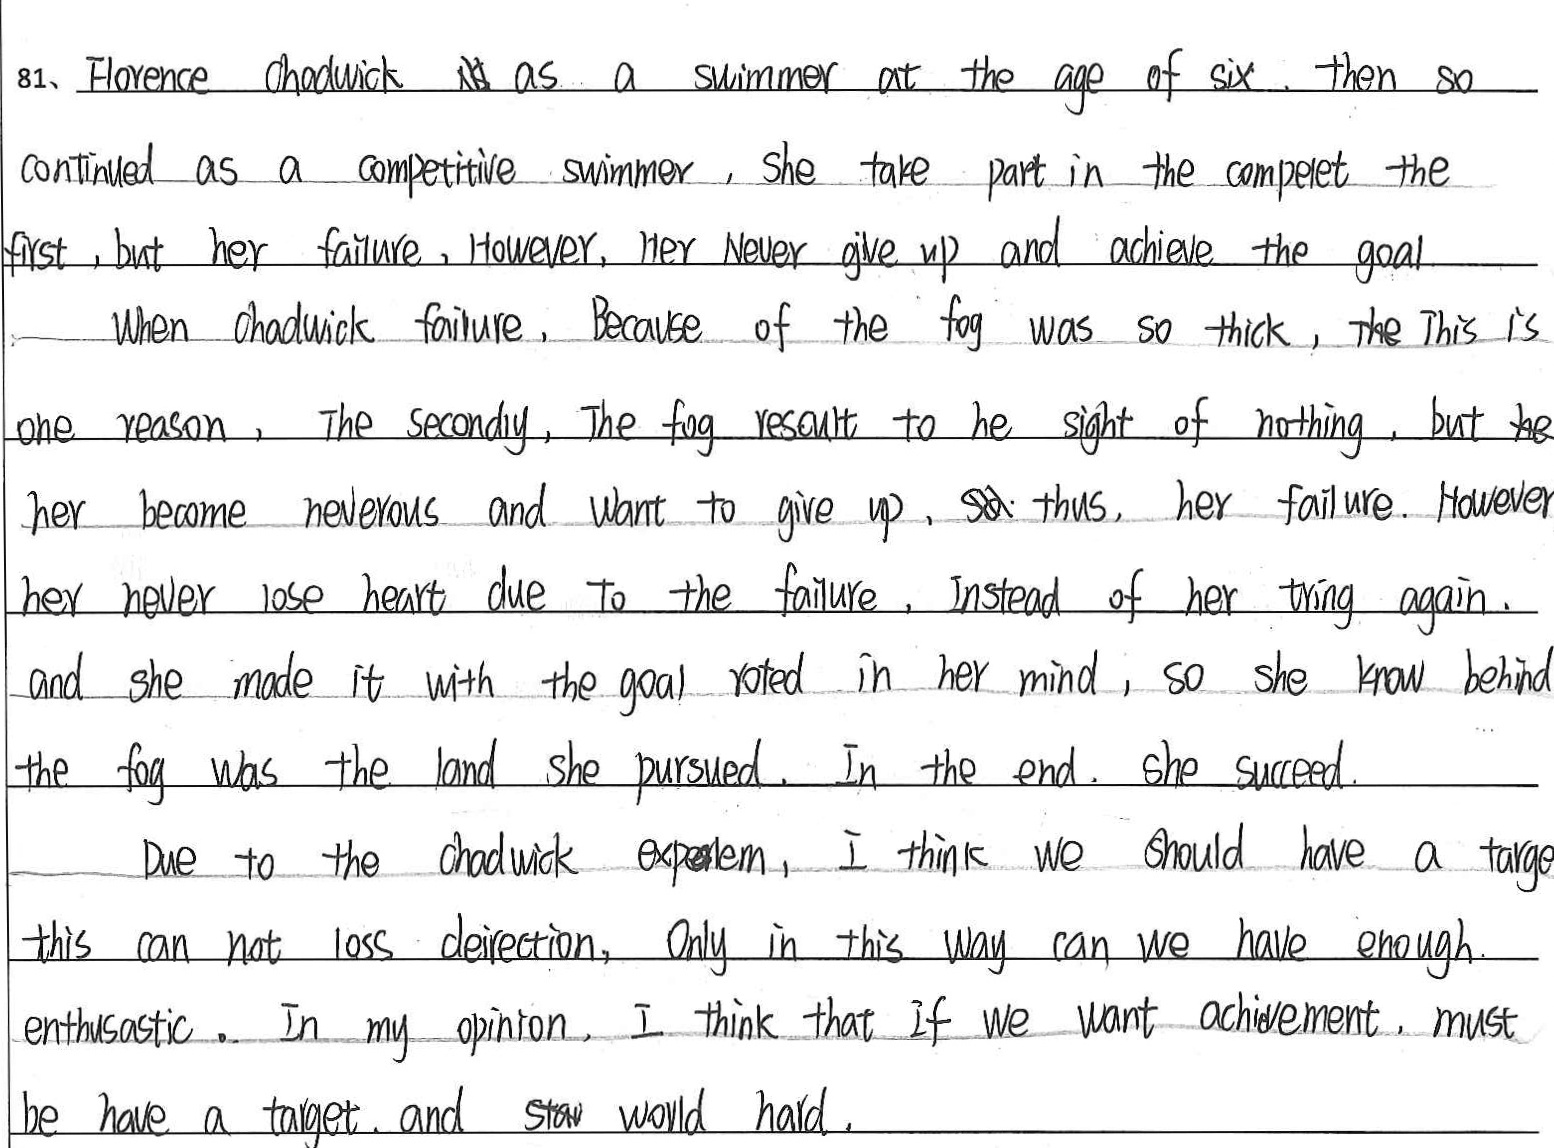 81、Florence Chadwick as a swimmer at the age of six. Then so
continued as a competitive swimmer, She take part in the compelet the
first, but her failure, However, Her Never give up and achieve the goal
When Chadwick failure, Because of the fog was so thick, The This is
one reason, The secondly, The fog resault to he sight of nothing, but he
her become neverous and want to give up, thus, her failure. However
her never lose heart due To the failure, Instead of her tring again.
and she made it with the goal roted in her mind, so she know behind
the fog was the land she pursued. In the end. She succeed.
Due to the Chadwick, I think we should have a targe
this can not loss deirection, Only in this way can we have enough
enthusastic. In my opinion, I think that If we want achievement, must
be have a target. and would hard.